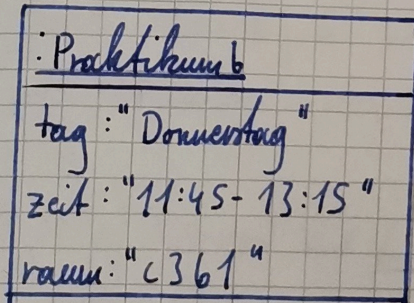 :Praktikum6
tag : "Donnerstag"
zeit : "11:45 - 13:15"
raum : "C361"